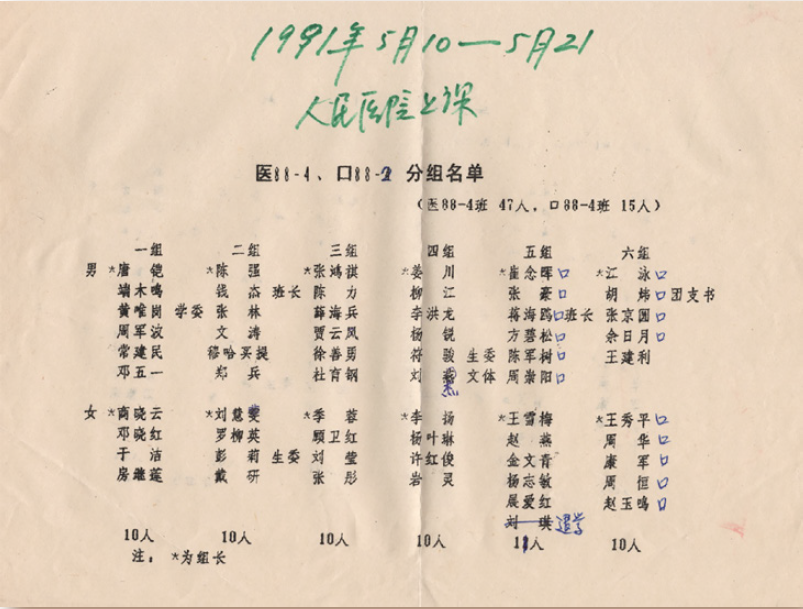 1991年5月10—5月21
人民医院上课
医88-4、口88-2 分组名单
(医88-4班 47人,口88-4班 15人)
一组 二组 三组 四组 五组 六组
男 *唐铠 *陈强 *张鸿淇 *姜川 *崔念晖口 *江泳口
端木鸣 钱杰 班长 陈力 柳江 张豪口 胡炜口 团支书
黄唯岗 学委 张林 薛海兵 李洪龙 蒋海鸥口 班长 张京圆口
周军波 文涛 贾云风 杨锐 方碧松口 余日月口
常建民 穆哈买提 徐善勇 符骏 生委 陈军树口 王建利
邓五一 郑兵 杜育钢 刘燕 文体 周崇阳口
女 *商晓云 *刘慧雯 *季蓉 *李扬 *王雪梅 *王秀平口
邓晓红 罗柳英 顾卫红 杨叶琳 赵燕 周华口
于洁 彭莉 生委 刘莹 许红俊 金文青 康军口
房继莲 戴研 张彤 岩灵 杨志敏 周恒口
展爱红 赵玉鸣口
刘琪 退学
10人 10人 10人 10人 11人 10人
注:*为组长